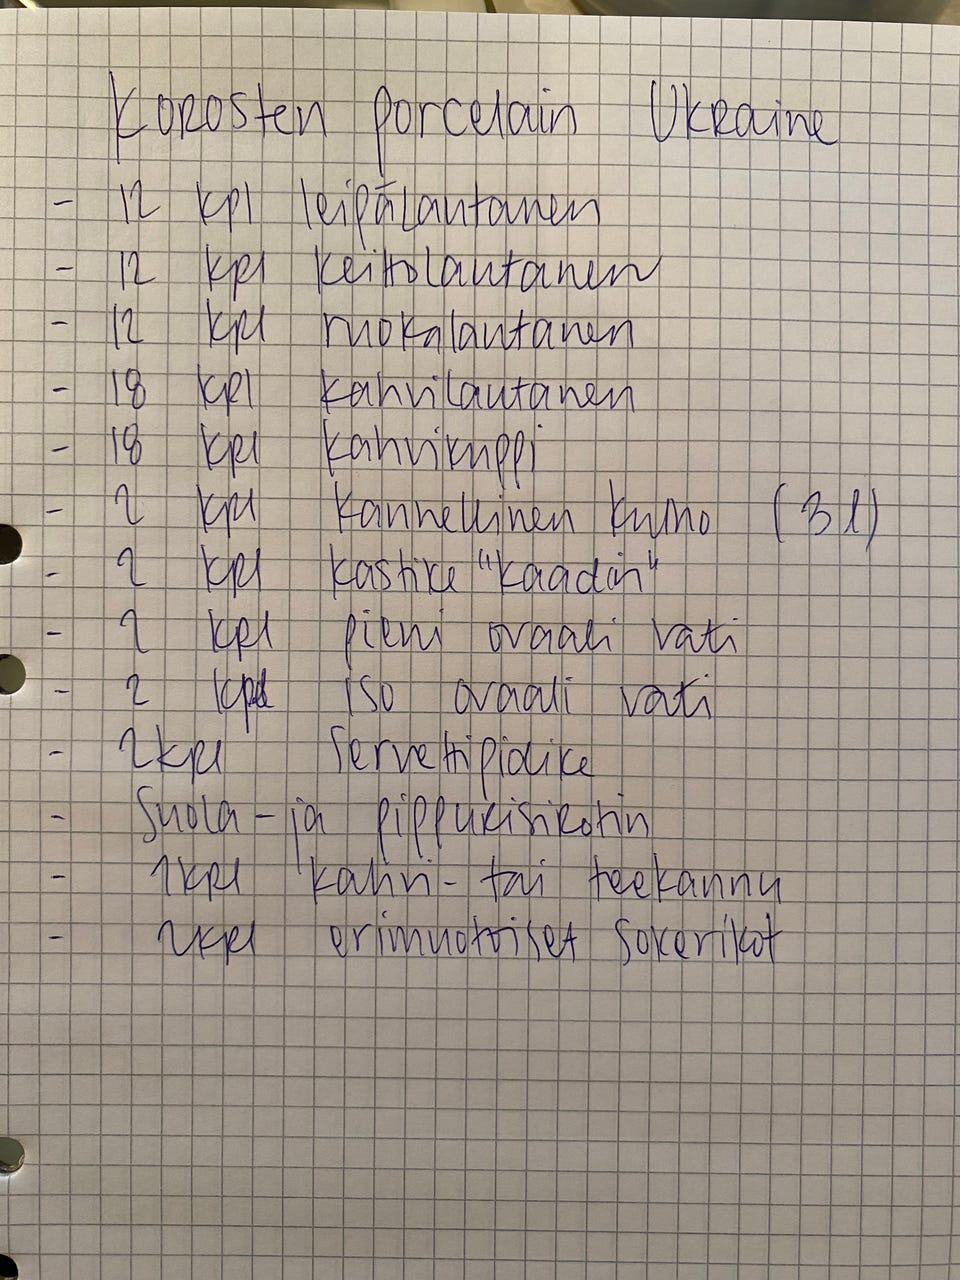 Korosten porcelain Ukraine
- 12 kpl leipälautanen
- 12 kpl keittolautanen
- 12 kpl ruokalautanen
- 18 kpl kahvilautanen
- 18 kpl kahvikuppi
- 2 kpl kannellinen kulho (3 l)
- 2 kpl kastike "kaadin"
- 2 kpl pieni ovaali vati
- 2 kpl iso ovaali vati
- 2kpl servettipidike
- Suola- ja pippurisirotin
- 1kpl kahvi- tai teekannu
- 2kpl erimuotoiset sokerikot